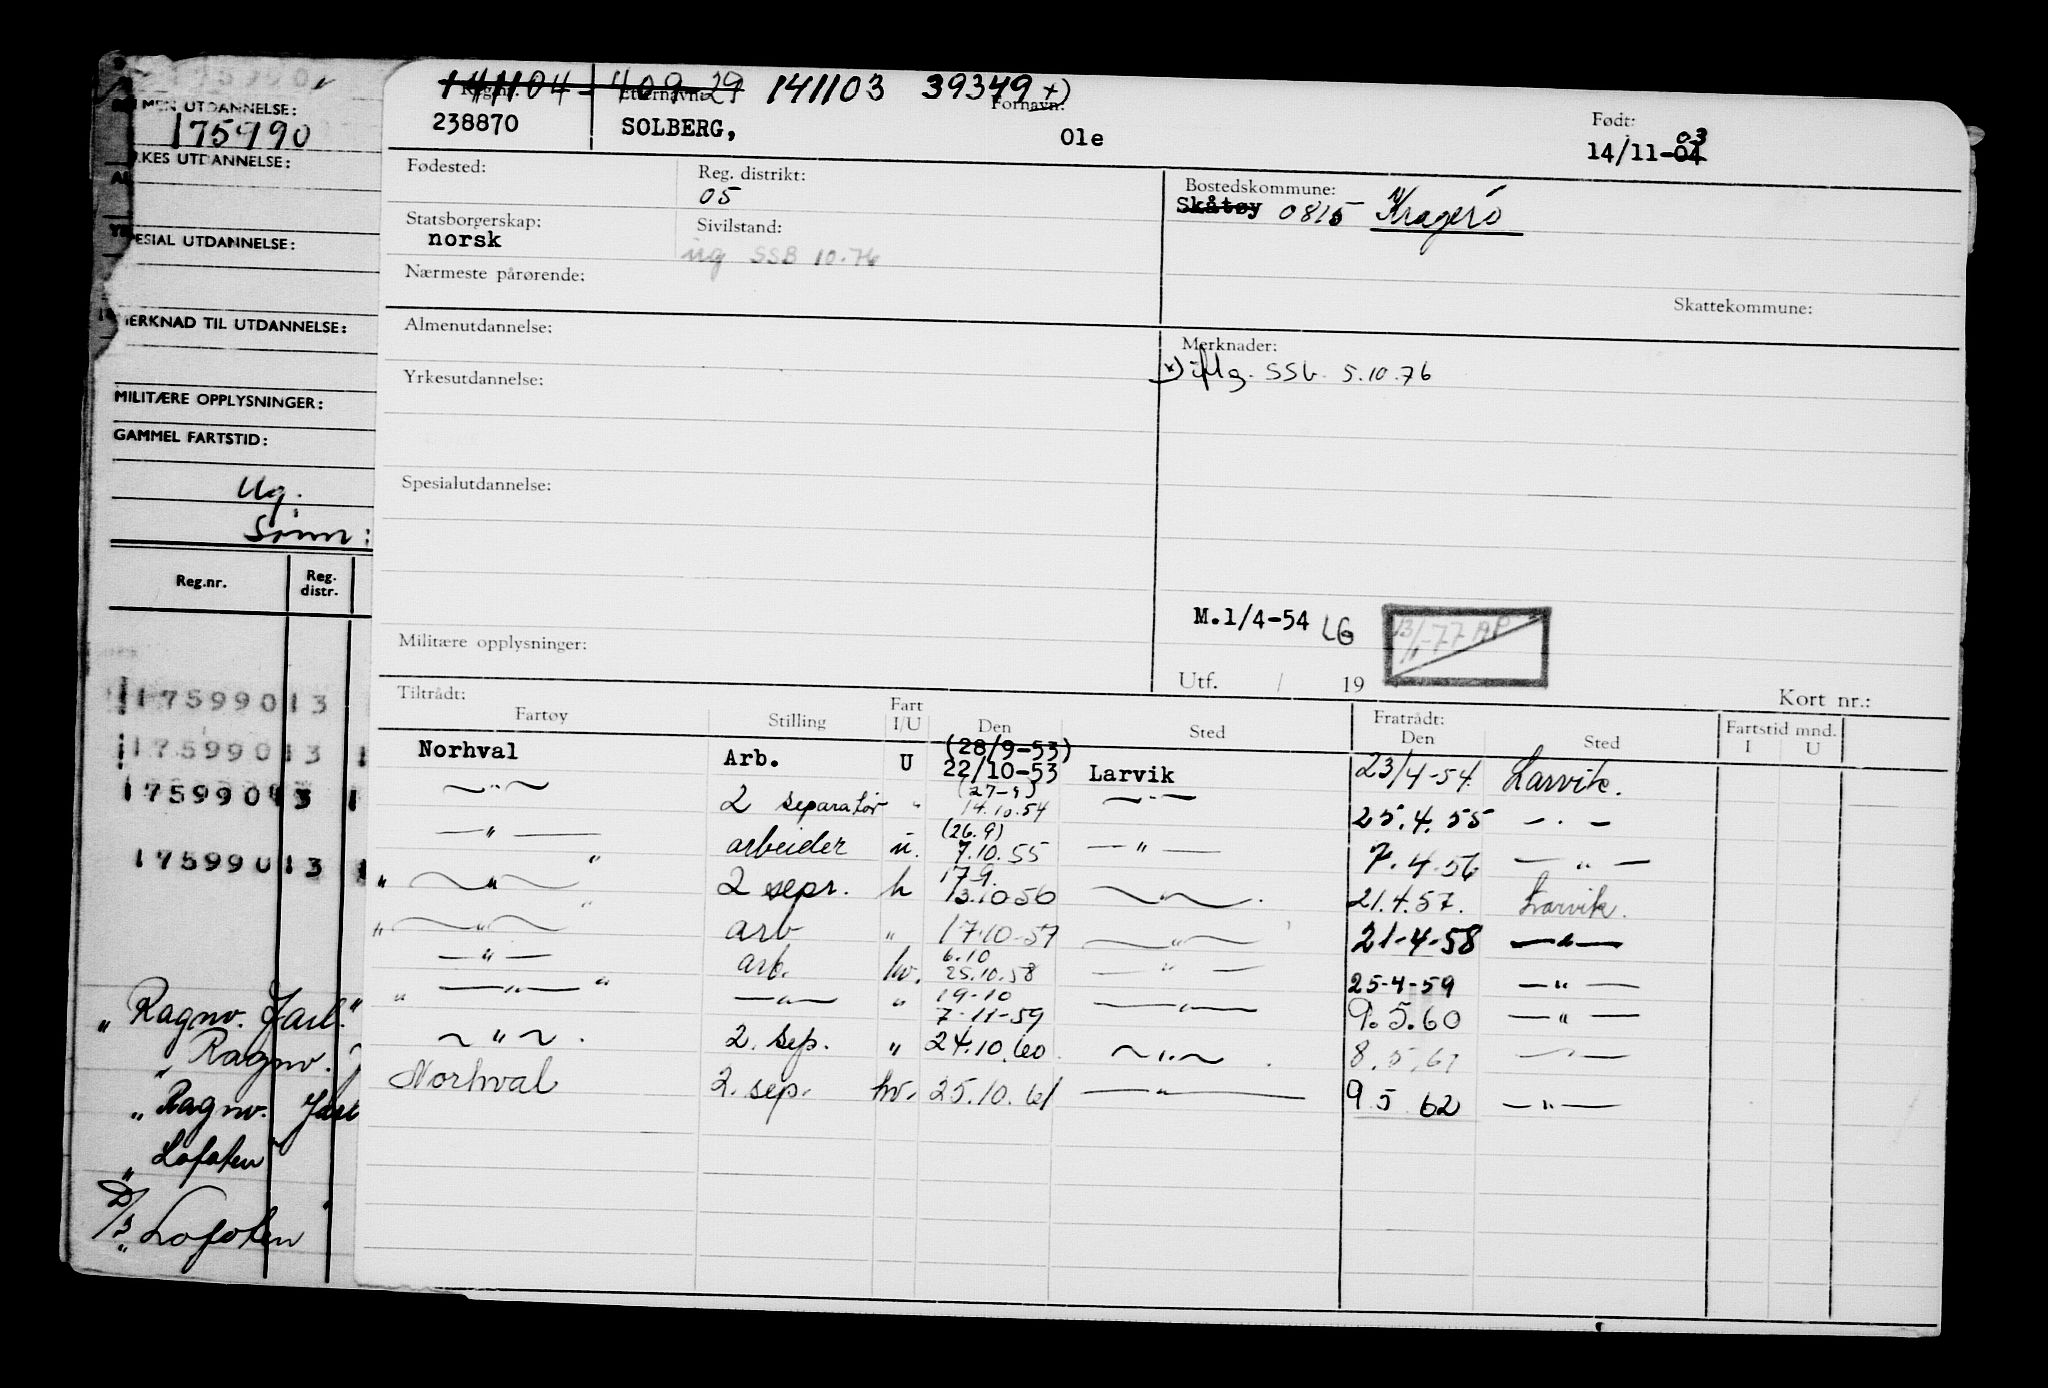 ALMEN UTDANNELSE:
175990
YRKES UTDANNELSE:
SPESIAL UTDANNELSE:
MERKNAD TIL UTDANNELSE:
MILITÆRE OPPLYSNINGER:
GAMMEL FARTSTID:
Ug.
Reg.nr. Reg. distr.
17599013
17599013
17599013
17599013
„ Ragnv. Jarl."
„ Ragnv. J
„ Ragnv. Jarl
„ Lofoten
D/S „ Lofoten
141104 - 409 29 141103 39349 +)
Reg.nr. Etternavn: Fornavn: Født:
238870 SOLBERG, Ole 14/11-04 03
Fødested: Reg. distrikt: Bostedskommune:
05 Skåtøy 0815 Kragerø
Statsborgerskap: Sivilstand:
norsk ug SSB 10.76
Nærmeste pårørende: Skattekommune:
Almenutdannelse: Merknader:
x) iflg. SSb. 5.10.76
Yrkesutdannelse:
Spesialutdannelse:
M.1/4-54 LG 13/11-77 AP
Militære opplysninger:
Utf. / 19 Kort nr.:
Tiltrådt: Fratrådt: Fartstid mnd.
Fartøy Stilling Fart I/U Den Sted Den Sted I U
Norhval Arb. U (28/9-53) 22/10-53 Larvik 23/4-54. Larvik.
— " — 2 separatør " (27-9) 14.10.54 — " — 25.4.55 — . —
— " — arbeider u. (26.9) 7.10.55 — " — 7.4.56 — " —
" — " — " 2 sepr. h 17.9. 13.10.56 — " — . 21.4.57. Larvik.
" — " — " arb " 17.10-57 — " — 21-4-58 — " —
— " — arb. hv. 6.10 25.10.58 — " — 25-4-59 — " —
" — " — " — " — " 19-10 7-11-59 — " — 9.5.60 — " —
— " — . 2. sep. " 24.10.60. — " — . 8.5.61 — " —
Norhval 2. sep. hv. 25.10.61 — " — 9.5.62 — " —